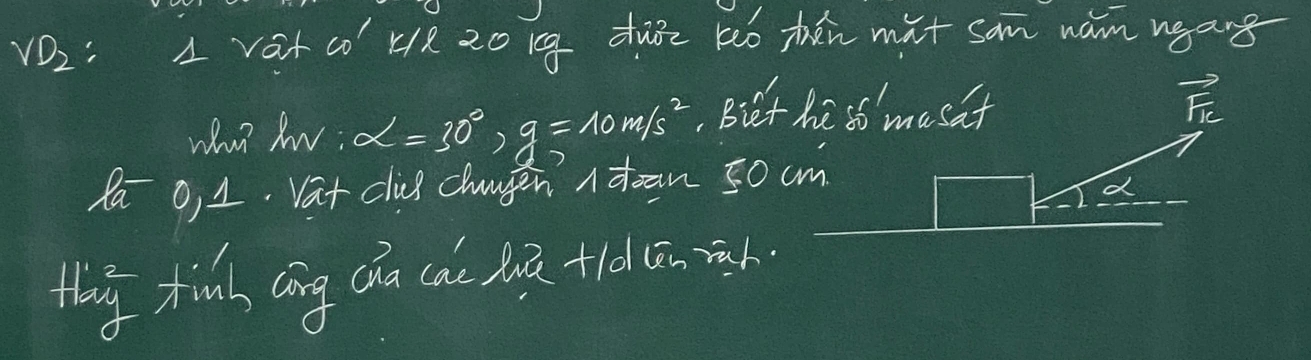 VD₂: 1 vật có k/l 20 kg được kéo trên mặt sàn nằm ngang
như hv: α = 30°, g = 10m/s². Biết hệ số ma sát
là 0,1. Vật dịch chuyển 1 đoạn 50 cm.
Hãy tính công của các lực t/d lên vật.
F⃗ₖ
α